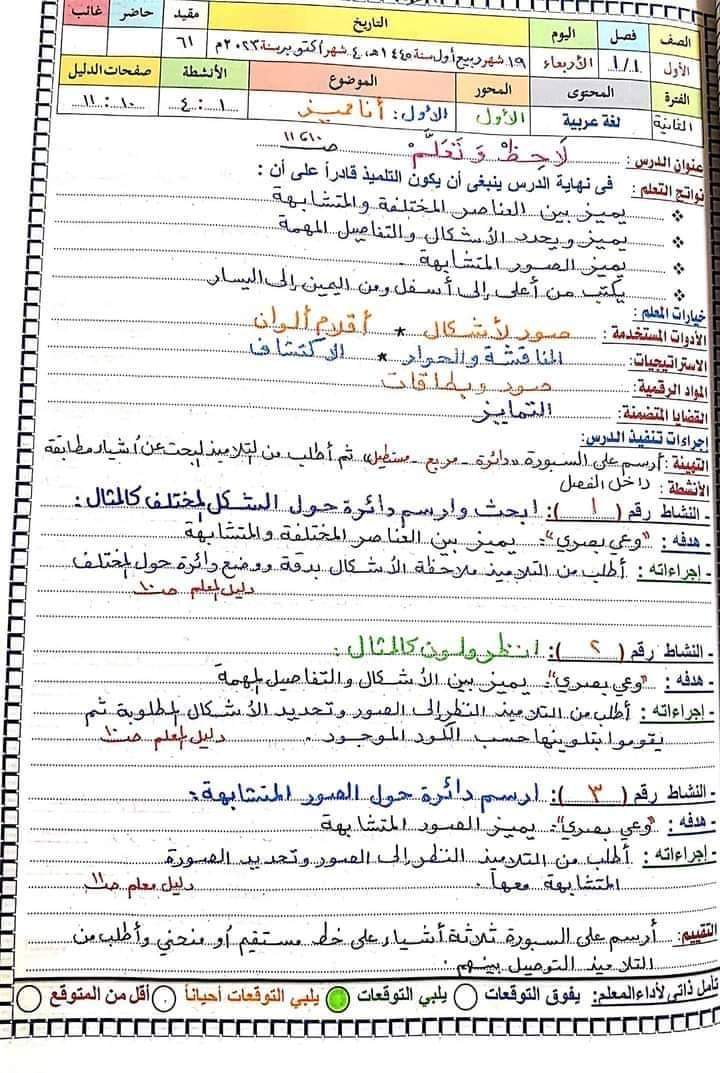 الصف فصل اليوم التاريخ مقيد حاضر غائب
الأول ١/١ الأربعاء ١٩ شهر ربيع أول سنة ١٤٤٥هـ، ٤ شهر أكتوبر سنة ٢٠٢٣م ٦١
الفترة المحتوى المحور الموضوع الأنشطة صفحات الدليل
الثانية لغة عربية الأول الأول: أنا مميز ١ : ٤ ١٠ : ١١
عنوان الدرس: لَاحِظْ وَ تَعَلَّمْ ص ١٠، ١١
نواتج التعلم: فى نهاية الدرس ينبغى أن يكون التلميذ قادراً على أن:
❖ يميز بين العناصر المختلفة والمتشابهة
❖ يميز ويحدد الأشكال والتفاصيل المهمة
❖ يميز الصور المتشابهة.
❖ يكتب من أعلى إلى أسفل ومن اليمين إلى اليسار
خيارات المعلم:
الأدوات المستخدمة: صور لأشكال * أقلام ألوان
الاستراتيجيات: المناقشة والحوار * الاكتشاف
المواد الرقمية: صور وبطاقات
القضايا المتضمنة: التمايز
إجراءات تنفيذ الدرس:
التهيئة: أرسم على السبورة «دائرة - مربع - مستطيل» ثم أطلب من التلاميذ البحث عن أشياء مطابقة
داخل الفصل
الأنشطة:
- النشاط رقم (١): ابحث وارسم دائرة حول الشكل المختلف كالمثال:
- هدفه: "وعي بصري": يميز بين العناصر المختلفة والمتشابهة
- إجراءاته: أطلب من التلاميذ ملاحظة الأشكال بدقة ووضع دائرة حول المختلف
دليل المعلم ص ١٠
- النشاط رقم (٢): انظر ولون كالمثال:
- هدفه: "وعي بصري": يميز بين الأشكال والتفاصيل المهمة
- إجراءاته: أطلب من التلاميذ النظر إلى الصور وتحديد الأشكال المطلوبة ثم
يقوموا بتلوينها حسب الكود الموجود. دليل المعلم ص ١٠
- النشاط رقم (٣): ارسم دائرة حول الصور المتشابهة:
- هدفه: "وعي بصري": يميز الصور المتشابهة
- إجراءاته: أطلب من التلاميذ النظر إلى الصور وتحديد الصورة
المتشابهة معها. دليل معلم ص ١١
التقييم: أرسم على السبورة ثلاثة أشياء على خط مستقيم أو منحني وأطلب من
التلاميذ التوصيل بينهم.
تأمل ذاتى لأداء المعلم: يفوق التوقعات يلبي التوقعات يلبي التوقعات أحياناً أقل من المتوقع